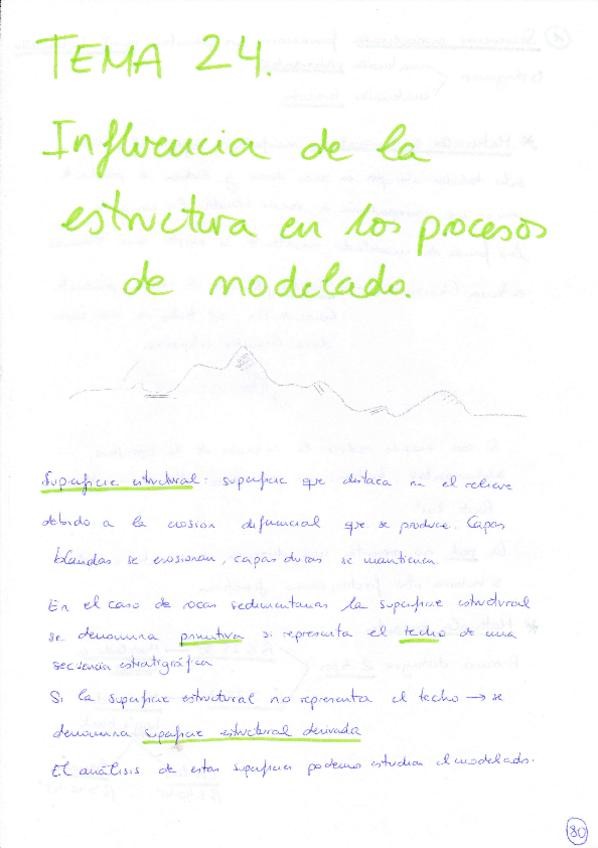 TEMA 24.
Influencia de la
estructura en los procesos
de modelado.
Superficie estructural: superficie que destaca en el relieve
debido a la erosión diferencial que se produce. Capas
blandas se erosionan, capas duras se mantienen
En el caso de rocas sedimentarias la superficie estructural
se denomina primitiva si representa el techo de una
secuencia estratigráfica
Si la superficie estructural no representa el techo → se
denomina superficie estructural derivada
El análisis de estas superficies podemos estudiar el modelado.
80